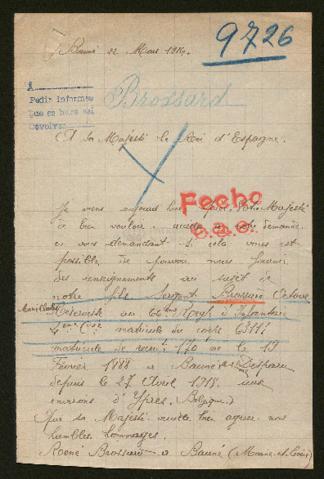 Bauné 22 Mars 1919.
9726
A
Pedir informes
que se hará así
Devolver
Brossard
A Sa Majesté le Roi d'Espagne.
Fecho
Je viens aujourd'hui Votre Majesté
à bien vouloir à ma demande
en vous demandant si cela vous est
possible de pouvoir nous fournir
des renseignements au sujet de
notre fils Sergent Brossard Octave
au 64ème Régt d'Infanterie
2eme Cie matricule du corps 6311
matricule de recrt 170 né le 19
Février 1888 à Bauné Disparu
depuis le 27 Avril 1918 aux
environs d'Ypres (Belgique)
que Sa Majesté veuille bien agréer nos
humbles hommages.
René Brossard à Bauné (Maine-et-Loire)